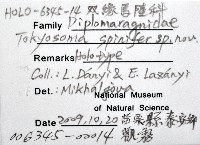 HOLO-6345-14 双線馬陸科
Family Diplomaragnidae
Tokyosoma spinifer sp. nov.
Remarks Holotype
Coll.: L. Dányi & E. Lazányi
Det.: Mikhaljova
National Museum
of Natural Science
Date 2009.10.20 苗栗縣泰安鄉
006345-00014 觀霧